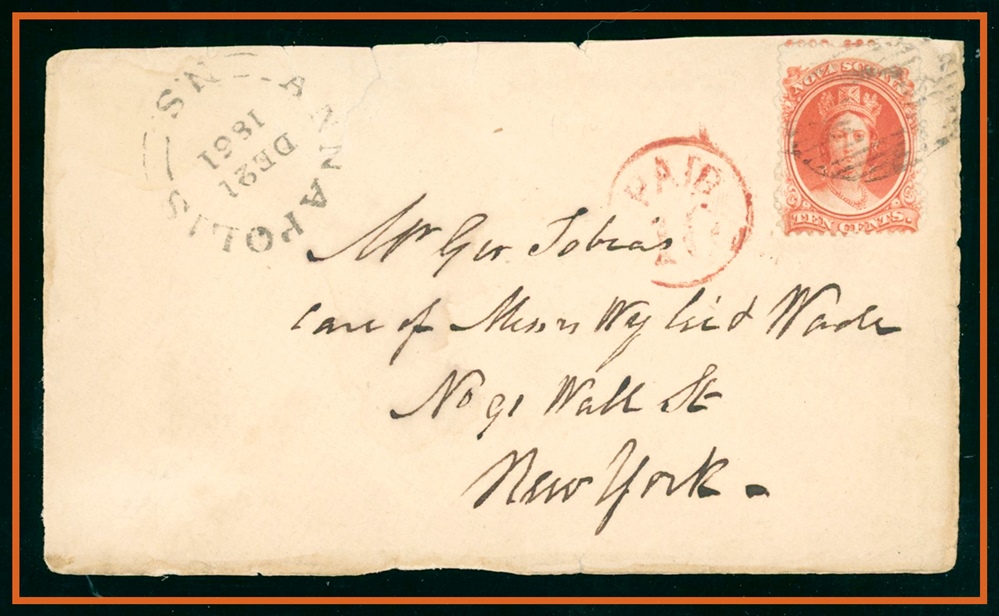 ANNAPOLIS N.S.
DE 21
1861
NOVA SCOTIA
TEN CENTS.
PAID
Mr Geo Tobias
care of Messrs Wylie & Wade
No 91 Wall St
New York.